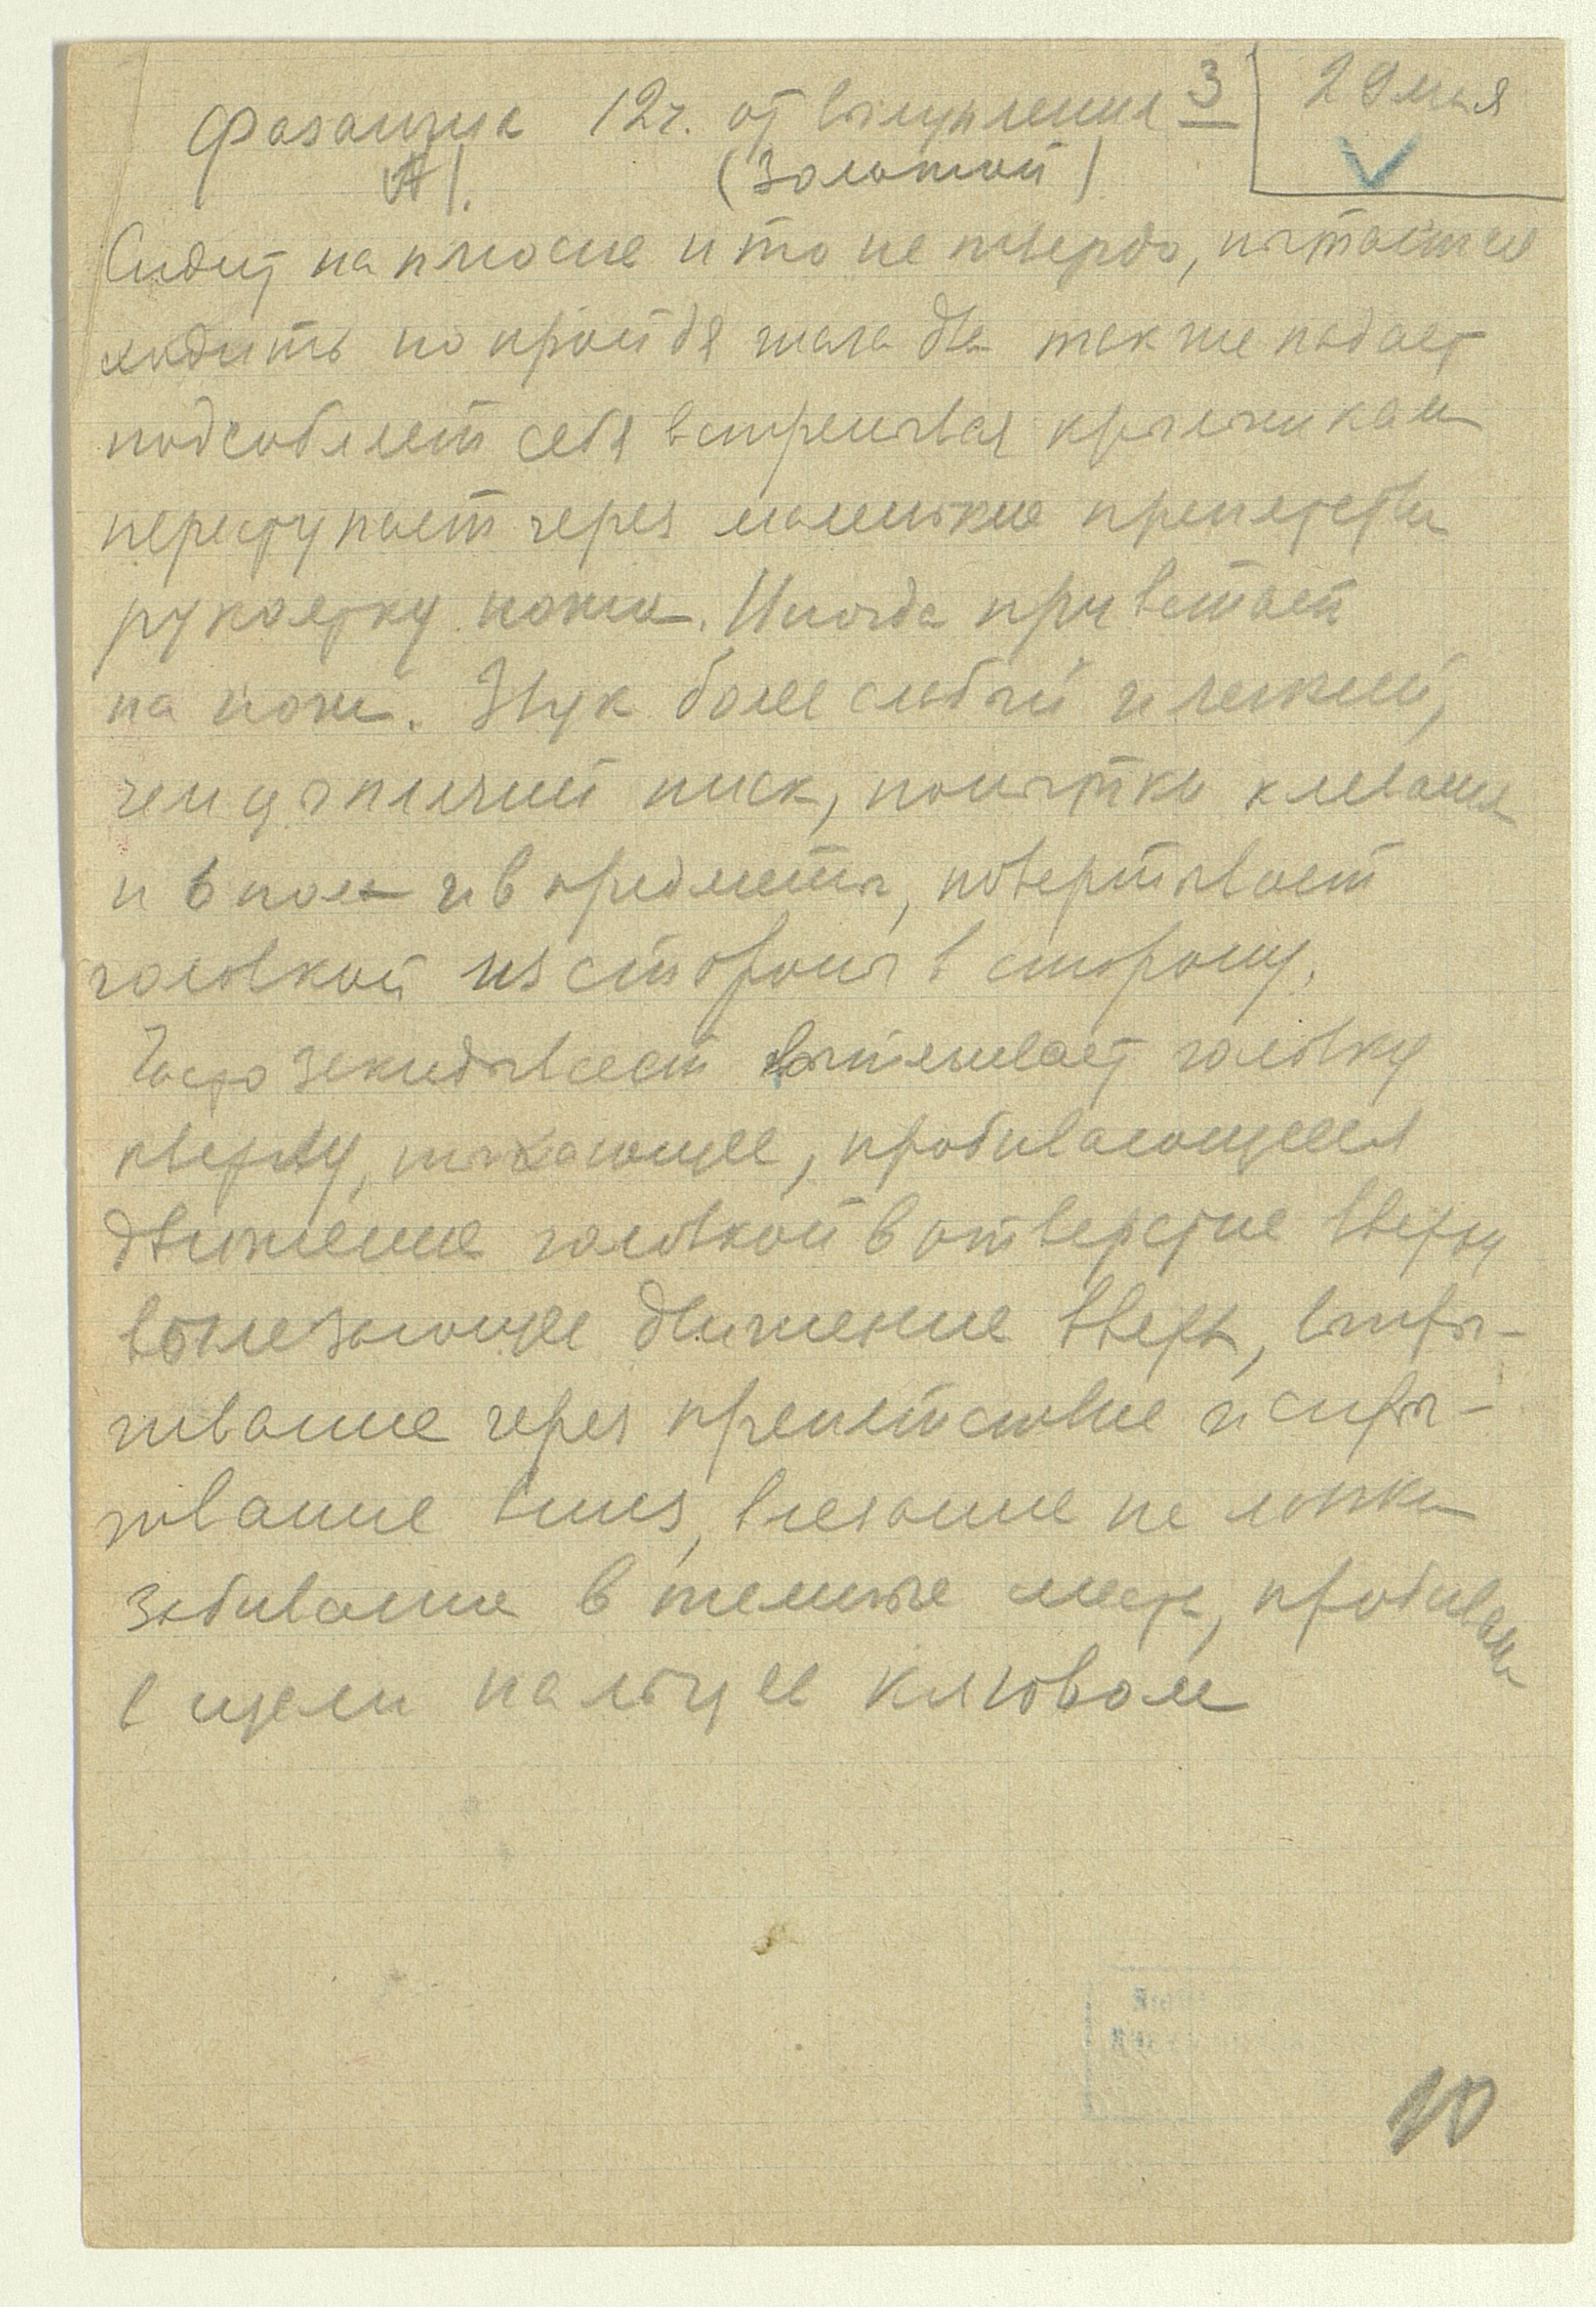 Фазанчик 12 ч. от вылупления 3 29 мая
А). (Золотой)
Сидит на плюсне и то не твердо, пытается
ходить но пройдя шага два также падает
подсобляет себя крылышкам
переступает через маленькие препятстви
рукоятку ножа. Иногда привстает
на ноги. Звук более слабый и нежный,
чем цыплячий писк, попытки клевания
и в пол и в предметы, повертывает
головкой из стороны в сторону.
Часто закидывает вытягивает головку
кверху, тыкающее, пробивающееся
движение головкой в отверстие вверху
движение вверх, впры-
гивание через препятствие и спры-
гивание вниз, влезание на
забивание в темные места, пробивани
в щели пальцев клювом
10